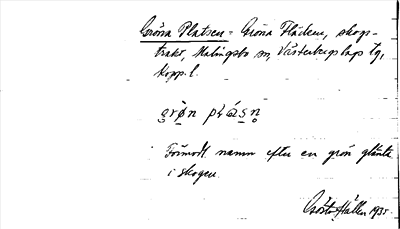 Gröna Platsen = Gröna Fläcken, skogs-
trakt, Malingsbo sn, Västerbergslags tg,
Kopp. l.
g̱rø̱n plásn̥
Förmodl. namn efter en grön glänta
i skogen.
Gösta Hallen 1935